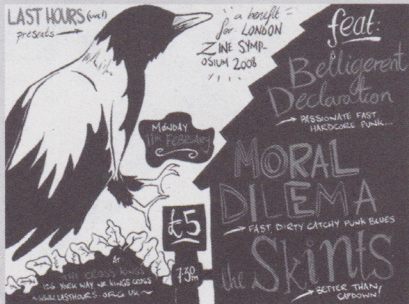 LAST HOURS
presents
a benefit
for LONDON
ZINE SYMP-
OSIUM 2008
feat:
Belligerent
Declaration
PASSIONATE FAST
HARDCORE PUNK...
MONDAY
11th FEBRUARY
MORAL
DILEMA
FAST DIRTY CATCHY PUNK BLUES
£5
7.30pm
the Skints
BETTER THAN
CAPDOWN!
at
THE CROSS KINGS
126 YORK WAY, KINGS CROSS
WWW.LASTHOURS.ORG.UK